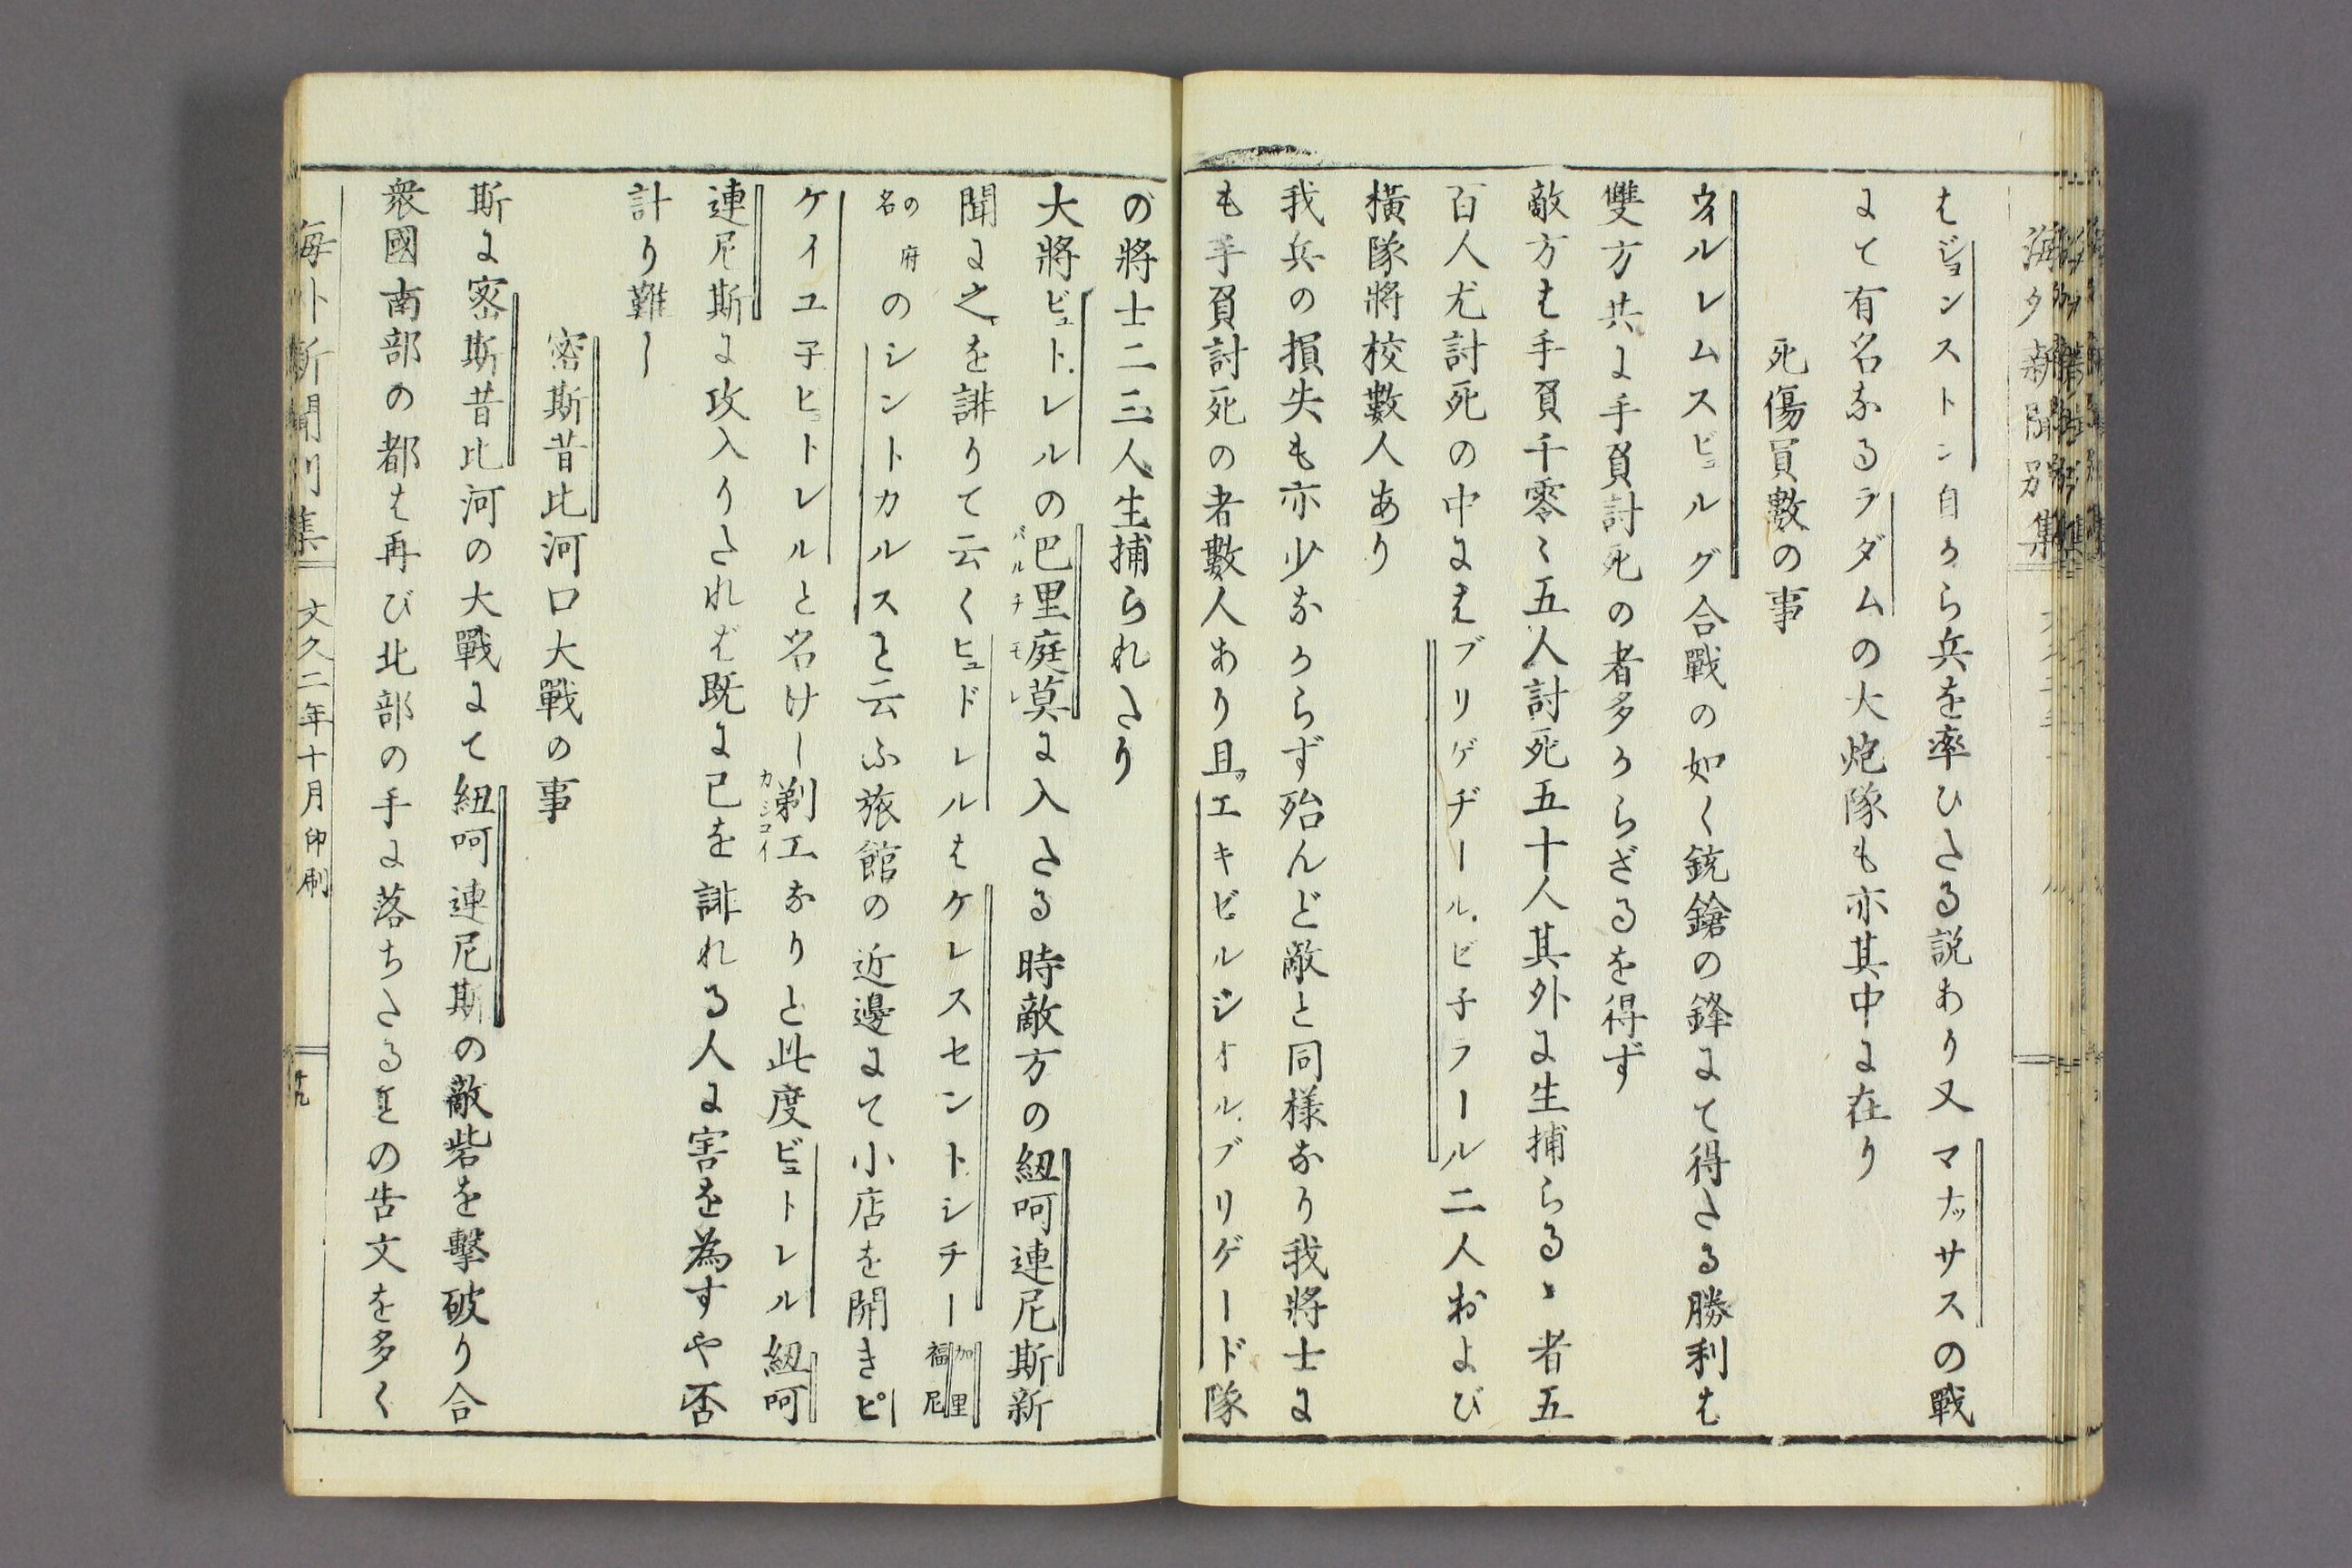 はジョンストン自から兵を率ひたる説あり又マナッサスの戰
にて有名なるラダムの大炮隊も亦其中に在り
死傷員數の事
ウィルレムスビュルグ合戰の如く銃鎗の鋒にて得たる勝利は
雙方共に手負討死の者多からざるを得ず
敵方は手負千零〻五人討死五十人其外に生捕らるゝ者五
百人尤討死の中にはブリゲヂールビ子ラール二人および
橫隊將校數人あり
我兵の損失も亦少なからず殆んど敵と同様なり我將士に
も手負討死の者數人あり且ツエキビルシオルブリゲードド隊
の將士二三人生捕られたり
大將ビュトレルの巴里庭莫バルチモレに入たる時敵方の紐呵連尼斯新
聞に之を誹りて云くヒュドレルはケレスセントシチー加里福尼
の府名のシントカルスと云ふ旅館の近邊にて小店を開きピ
ケイユ子ヒュトレルと名けし剃工カシコイなりと此度ビュトレル紐呵
連尼斯に攻入りたれば既に已を誹れる人に害を為すや否
計り難し
密斯昔比河口大戰の事
斯に密斯昔比河の大戰にて紐呵連尼斯の敵砦を擊破り合
衆國南部の都は再び北部の手に落ちたるとの告文を多く
海外新聞別集 文久二年十月印刷 廿九